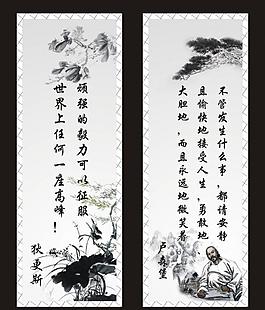 顽强的毅力可以征服
世界上任何一座高峰！
狄更斯
不管发生什么事，都请安静
且愉快地接受人生，勇敢地、
大胆地，而且永远地微笑着。
卢森堡